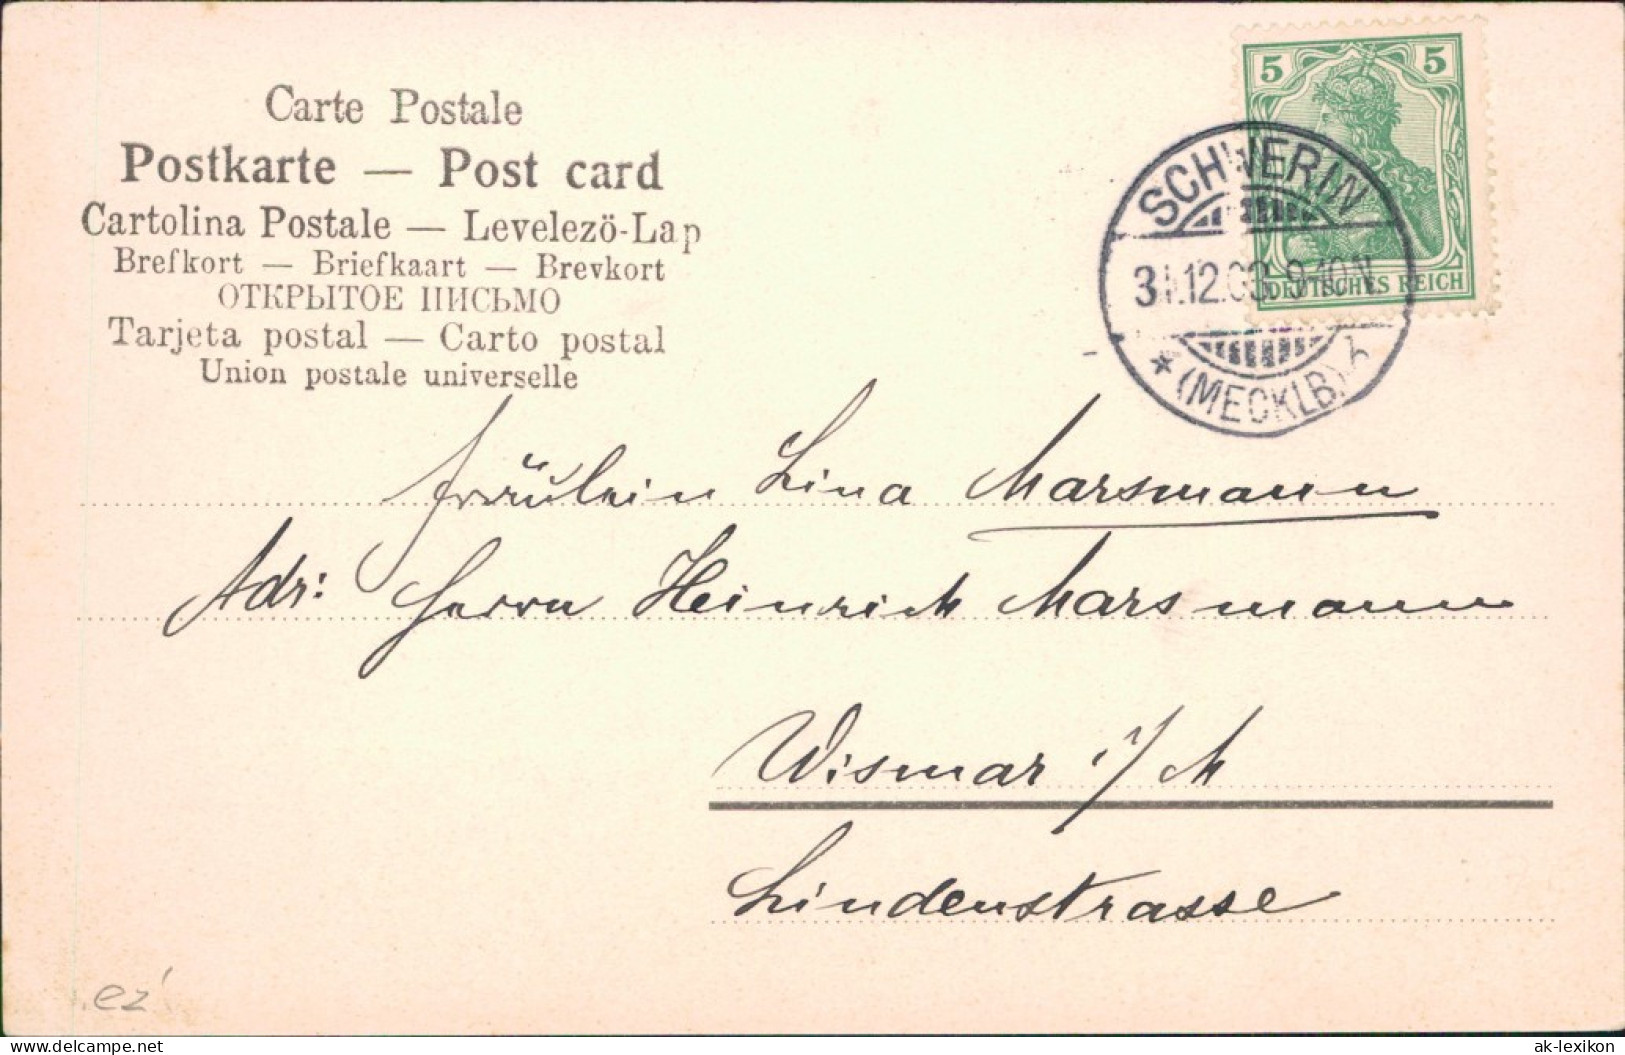 Carte Postale
Postkarte — Post card
Cartolina Postale — Levelezö-Lap
Brefkort — Briefkaart — Brevkort
ОТКРЫТОЕ ПИСЬМО
Tarjeta postal — Carto postal
Union postale universelle
5 5
DEUTSCHES REICH
SCHWERIN
31.12.03. 9-10N.
* (MECKLB) h
Fräulein Lina Marsmann
Adr: Herrn Heinrich Marsmann
Wismar i/M
Lindenstrasse
ez'
www.delcampe.net
ak-lexikon